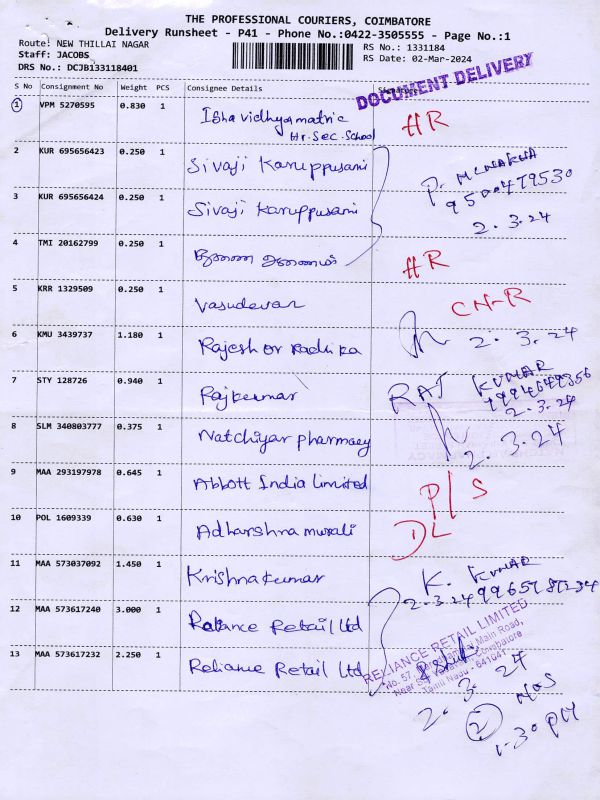 THE PROFESSIONAL COURIERS, COIMBATORE
Delivery Runsheet - P41 - Phone No.:0422-3505555 - Page No.:1
Route: NEW THILLAI NAGAR
Staff: JACOBS
DRS No.: DCJB133118401
RS No.: 1331184
RS Date: 02-Mar-2024
DOCUMENT DELIVERY
S No Consignment No Weight PCS Consignee Details Signature
1 VPM 5270595 0.830 1 Isha vidhyamatric
Hr.Sec.School
HR
2 KUR 695656423 0.250 1 Sivaji Karuppusami
P.
9500479530
3 KUR 695656424 0.250 1 Sivaji Karuppusami
2.3.24
4 TMI 20162799 0.250 1
HR
5 KRR 1329509 0.250 1 Vasudevan
CH-R
6 KMU 3439737 1.180 1 Rajesh or Radhika
2.3.24
7 STY 128726 0.940 1 Rajkumar
RAJ KUMAR
2.3.24
8 SLM 340803777 0.375 1 Natchiyar pharmacy
2.3.24
9 MAA 293197978 0.645 1 Abbott India limited
P/S
10 POL 1609339 0.630 1 Adharshna murali
DL
11 MAA 573037092 1.450 1 Krishnakumar
K. KUMAR
2.3.24
12 MAA 573617240 3.000 1 Reliance Retail Ltd
13 MAA 573617232 2.250 1 Reliance Retail Ltd
RELIANCE RETAIL LIMITED
No. 57, Main Road,
Near Coimbatore
Tamil Nadu - 641041
2.3.24
2 NOS
1-30 PM